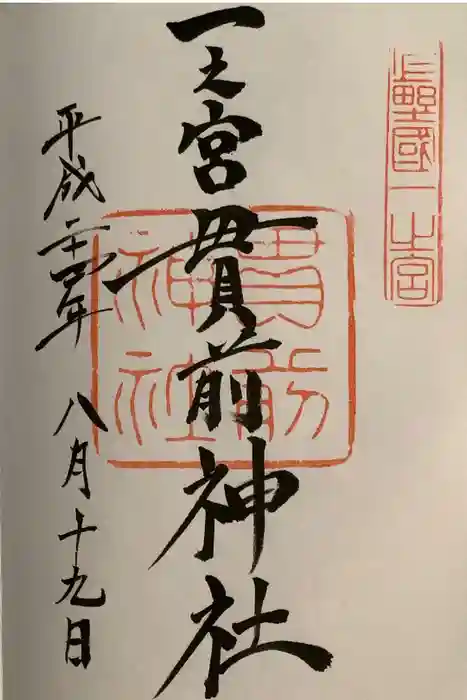 上野國一之宮
一之宮貫前神社
貫前神社
平成二十四年八月十九日